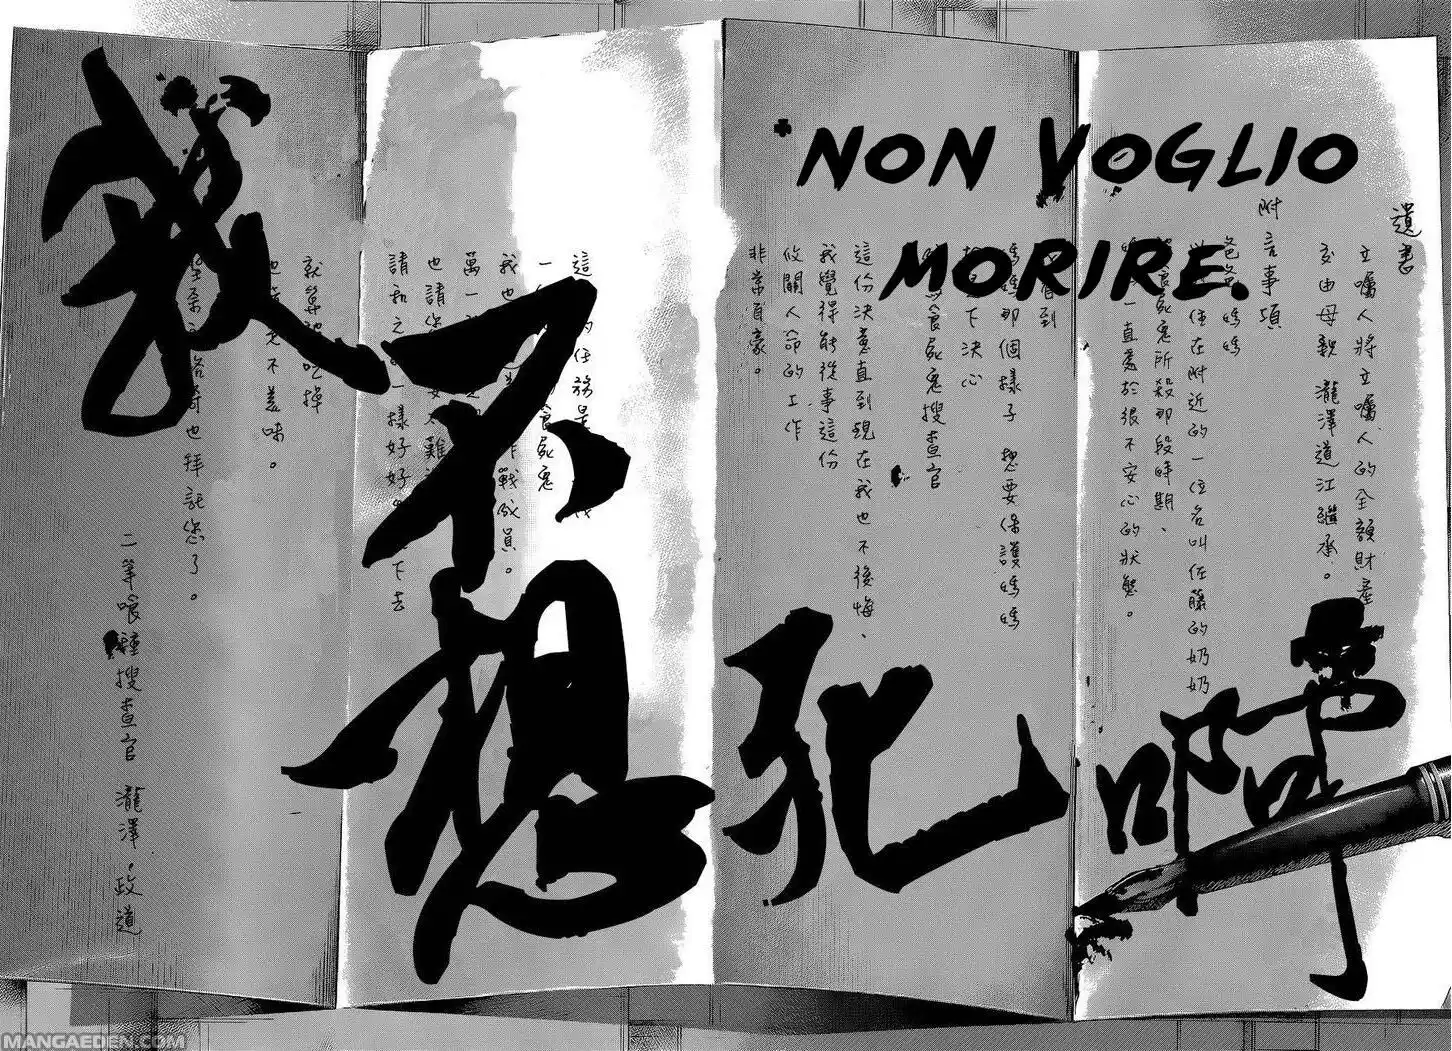 NON VOGLIO
MORIRE.
遺書
立囑人將立囑人的全額財產
交由母親 瀧澤道江繼承。
附言事項
爸爸 媽媽
住在附近的一位名叫佐藤的奶奶
食屍鬼所殺那段時期、
一直處於很不安心的狀態。
看到
媽媽那個樣子 想要保護媽媽
下決心
食屍鬼搜查官
這份決意直到現在我也不後悔、
我覺得能從事這份
攸關人命的工作
非常自豪。
這 的任務是
一 食屍鬼
我也 作戰成員。
萬一
也請您 太難
請和之 一樣好好 下去
就算被吃掉
也 不美味。
也拜託您了。
二等喰種搜查官 瀧澤・政道
我不想死啊
MANGAEDEN.COM